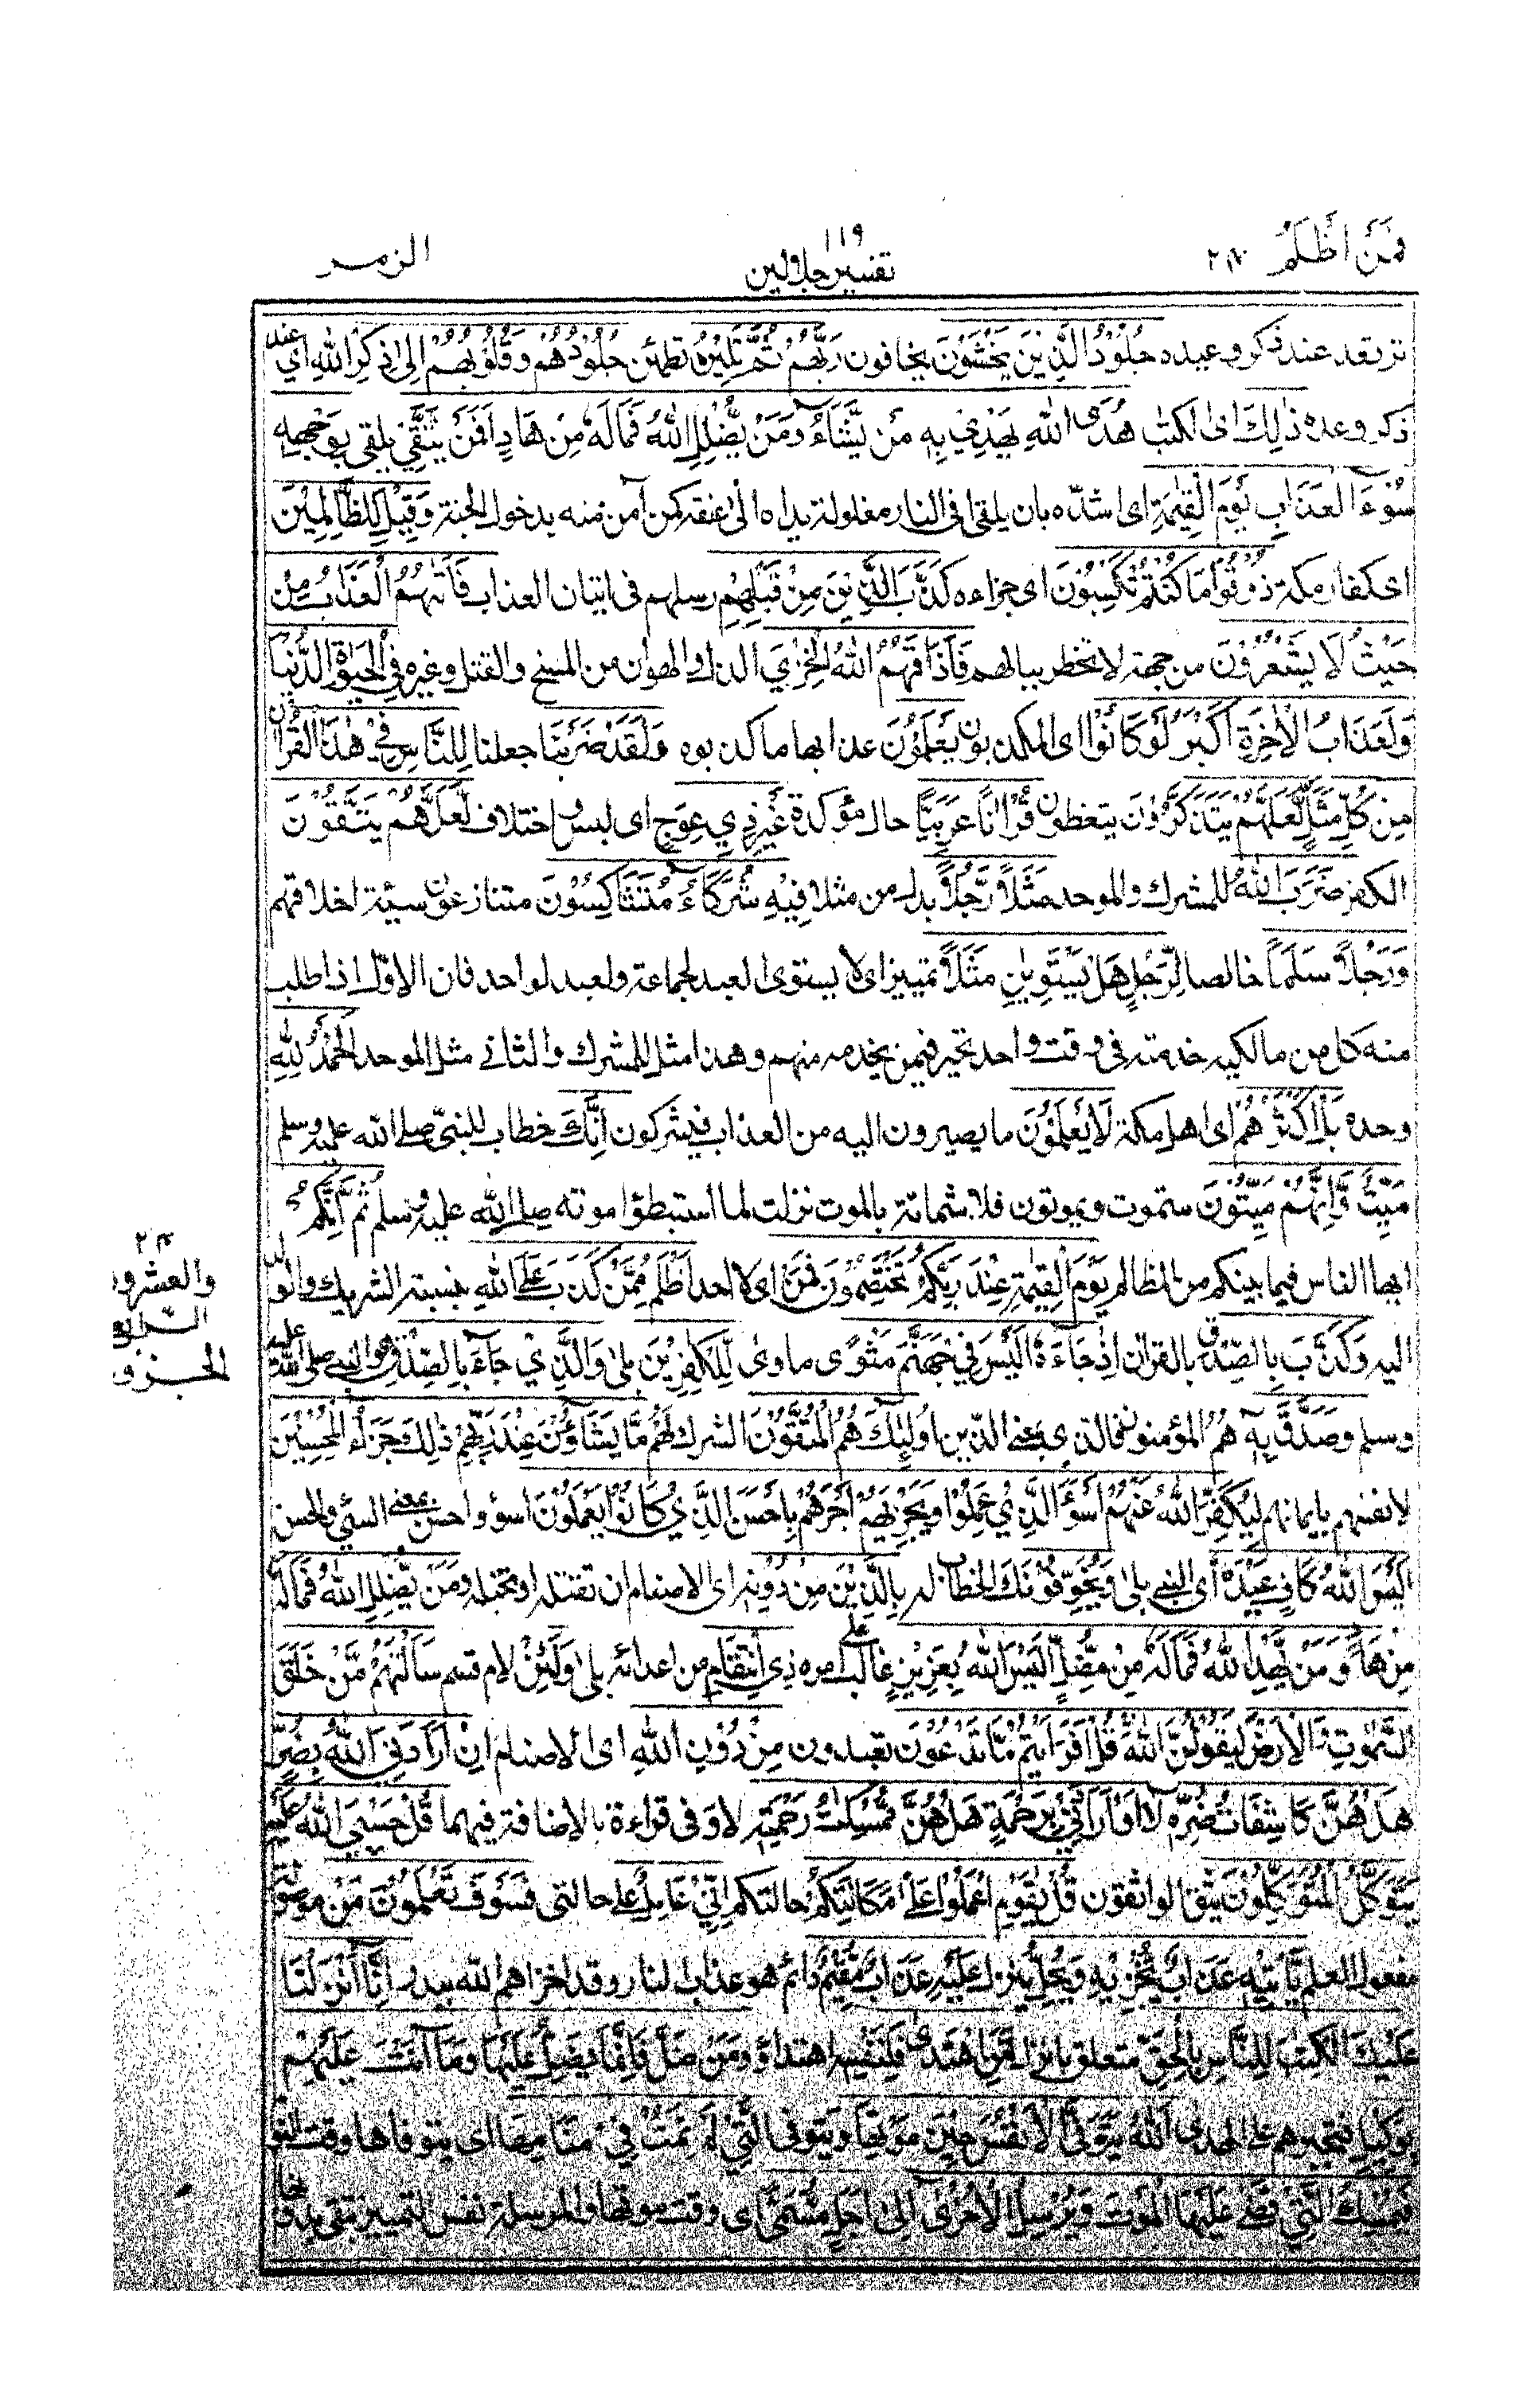 فمن أظلم ٢٤
١١٩
تفسير جلالين
الزمر
ترتعد عند ذكر وعيده جُلُوْدُ الَّذِيْنَ يَخْشَوْنَ يخافون رَبَّهُمْ ثُمَّ تَلِيْنُ تطمئن جُلُوْدُهُمْ وَقُلُوْبُهُمْ اِلٰى ذِكْرِ اللهِ اى عند
ذكر وعده ذٰلِكَ اى الكتٰب هُدَى اللهِ يَهْدِيْ بِهٖ مَنْ يَّشَآءُ وَمَنْ يُّضْلِلِ اللهُ فَمَا لَهٗ مِنْ هَادٍ اَفَمَنْ يَّتَّقِيْ يلقى بِوَجْهِهٖ
سُوْٓءَ الْعَذَابِ يَوْمَ الْقِيٰمَةِ اى اشدّه بان يلقى فى النار مغلولة يداه الى عنقه كمن اٰمن منه بدخول الجنة وَقِيْلَ لِلظّٰلِمِيْنَ
اى كفار مكة ذُوْقُوْا مَا كُنْتُمْ تَكْسِبُوْنَ اى جزاءه كَذَّبَ الَّذِيْنَ مِنْ قَبْلِهِمْ رسلهم فى اتيان العذاب فَاَتٰىهُمُ الْعَذَابُ مِنْ
حَيْثُ لَا يَشْعُرُوْنَ من جهة لا تخطر ببالهم فَاَذَاقَهُمُ اللهُ الْخِزْيَ الذل والهوان من المسخ والقتل وغيره فِي الْحَيٰوةِ الدُّنْيَا
وَلَعَذَابُ الْاٰخِرَةِ اَكْبَرُ لَوْ كَانُوْا اى المكذبون يَعْلَمُوْنَ عذابها ما كذبوه وَلَقَدْ ضَرَبْنَا جعلنا لِلنَّاسِ فِيْ هٰذَا الْقُرْاٰنِ
مِنْ كُلِّ مَثَلٍ لَّعَلَّهُمْ يَتَذَكَّرُوْنَ يتعظون قُرْاٰنًا عَرَبِيًّا حال مؤكدة غَيْرَ ذِيْ عِوَجٍ اى لبس واختلاف لَّعَلَّهُمْ يَتَّقُوْنَ
الكفر ضَرَبَ اللهُ للمشرك والموحد مَثَلًا رَّجُلًا بدل من مثلا فِيْهِ شُرَكَآءُ مُتَشَاكِسُوْنَ متنازعون سيئة اخلاقهم
وَرَجُلًا سَلَمًا خالصا لِّرَجُلٍ هَلْ يَسْتَوِيٰنِ مَثَلًا تمييز اى لا يستوى العبد لجماعة والعبد لواحد فان الاوّل اذا طلب
منه كل من مالكيه خدمته فى وقت واحد تحير فيمن يخدمه منهم وهذا مثل للمشرك والثانى مثل الموحد اَلْحَمْدُ لِلّٰهِ
وحده بَلْ اَكْثَرُهُمْ اى اهل مكة لَا يَعْلَمُوْنَ ما يصيرون اليه من العذاب فيشركون اِنَّكَ خطاب للنبىّ صلى الله عليه وسلم
مَيِّتٌ وَّاِنَّهُمْ مَّيِّتُوْنَ ستموت ويموتون فلا شماتة بالموت نزلت لما استبطؤا موته صلى الله عليه وسلم ثُمَّ اِنَّكُمْ
ايها الناس فيما بينكم من المظالم يَوْمَ الْقِيٰمَةِ عِنْدَ رَبِّكُمْ تَخْتَصِمُوْنَ فَمَنْ اى لا احد اَظْلَمُ مِمَّنْ كَذَبَ عَلَى اللهِ بنسبة الشريك والولد
اليه وَكَذَّبَ بِالصِّدْقِ بالقراٰن اِذْ جَآءَهٗ اَلَيْسَ فِيْ جَهَنَّمَ مَثْوًى ماوى لِّلْكٰفِرِيْنَ بلى وَالَّذِيْ جَآءَ بِالصِّدْقِ هو النبى صلى الله عليه
وسلم وَصَدَّقَ بِهٖٓ هُمُ المؤمنون فالذى بمعنى الذين اُولٰٓئِكَ هُمُ الْمُتَّقُوْنَ الشرك لَهُمْ مَّا يَشَآءُوْنَ عِنْدَ رَبِّهِمْ ذٰلِكَ جَزَآءُ الْمُحْسِنِيْنَ
لانفسهم بايمانهم لِيُكَفِّرَ اللهُ عَنْهُمْ اَسْوَاَ الَّذِيْ عَمِلُوْا وَيَجْزِيَهُمْ اَجْرَهُمْ بِاَحْسَنِ الَّذِيْ كَانُوْا يَعْمَلُوْنَ اسوء واحسن بمعنى السيّئ والحسن
اَلَيْسَ اللهُ بِكَافٍ عَبْدَهٗ اى النبى بلى وَيُخَوِّفُوْنَكَ الخطاب له بِالَّذِيْنَ مِنْ دُوْنِهٖ اى الاصنام ان تقتله او تخبله وَمَنْ يُّضْلِلِ اللهُ فَمَا لَهٗ
مِنْ هَادٍ وَمَنْ يَّهْدِ اللهُ فَمَا لَهٗ مِنْ مُّضِلٍّ اَلَيْسَ اللهُ بِعَزِيْزٍ غالب على امره ذِي انْتِقَامٍ من اعدائه بلى وَلَئِنْ لام قسم سَاَلْتَهُمْ مَّنْ خَلَقَ
السَّمٰوٰتِ وَالْاَرْضَ لَيَقُوْلُنَّ اللهُ قُلْ اَفَرَاَيْتُمْ مَّا تَدْعُوْنَ تعبدون مِنْ دُوْنِ اللهِ اى الاصنام اِنْ اَرَادَنِيَ اللهُ بِضُرٍّ
هَلْ هُنَّ كَاشِفَاتُ ضُرِّهٖٓ لا اَوْ اَرَادَنِيْ بِرَحْمَةٍ هَلْ هُنَّ مُمْسِكَاتُ رَحْمَتِهٖ لا وفى قراءة بالاضافة فيهما قُلْ حَسْبِيَ اللهُ عَلَيْهِ
يَتَوَكَّلُ الْمُتَوَكِّلُوْنَ يثق الواثقون قُلْ يٰقَوْمِ اعْمَلُوْا عَلٰى مَكَانَتِكُمْ حالتكم اِنِّيْ عَامِلٌ على حالتى فَسَوْفَ تَعْلَمُوْنَ مَنْ موصولة
مفعول العلم يَّاْتِيْهِ عَذَابٌ يُّخْزِيْهِ وَيَحِلُّ ينزل عَلَيْهِ عَذَابٌ مُّقِيْمٌ دائم هو عذاب النار وقد اخزاهم الله ببدر اِنَّآ اَنْزَلْنَا
عَلَيْكَ الْكِتٰبَ لِلنَّاسِ بِالْحَقِّ متعلق بانزل فَمَنِ اهْتَدٰى فَلِنَفْسِهٖ اهتداؤه وَمَنْ ضَلَّ فَاِنَّمَا يَضِلُّ عَلَيْهَا وَمَآ اَنْتَ عَلَيْهِمْ
بِوَكِيْلٍ فتجبرهم على الهدى اَللهُ يَتَوَفَّى الْاَنْفُسَ حِيْنَ مَوْتِهَا وَيتوفى الَّتِيْ لَمْ تَمُتْ فِيْ مَنَامِهَا اى يتوفاها وقت النوم
فَيُمْسِكُ الَّتِيْ قَضٰى عَلَيْهَا الْمَوْتَ وَيُرْسِلُ الْاُخْرٰٓى اِلٰٓى اَجَلٍ مُّسَمًّى اى وقت موتها والمرسلة نفس التمييز تبقى بدونها
٢٤
والعشرون
الرابع
الجزو